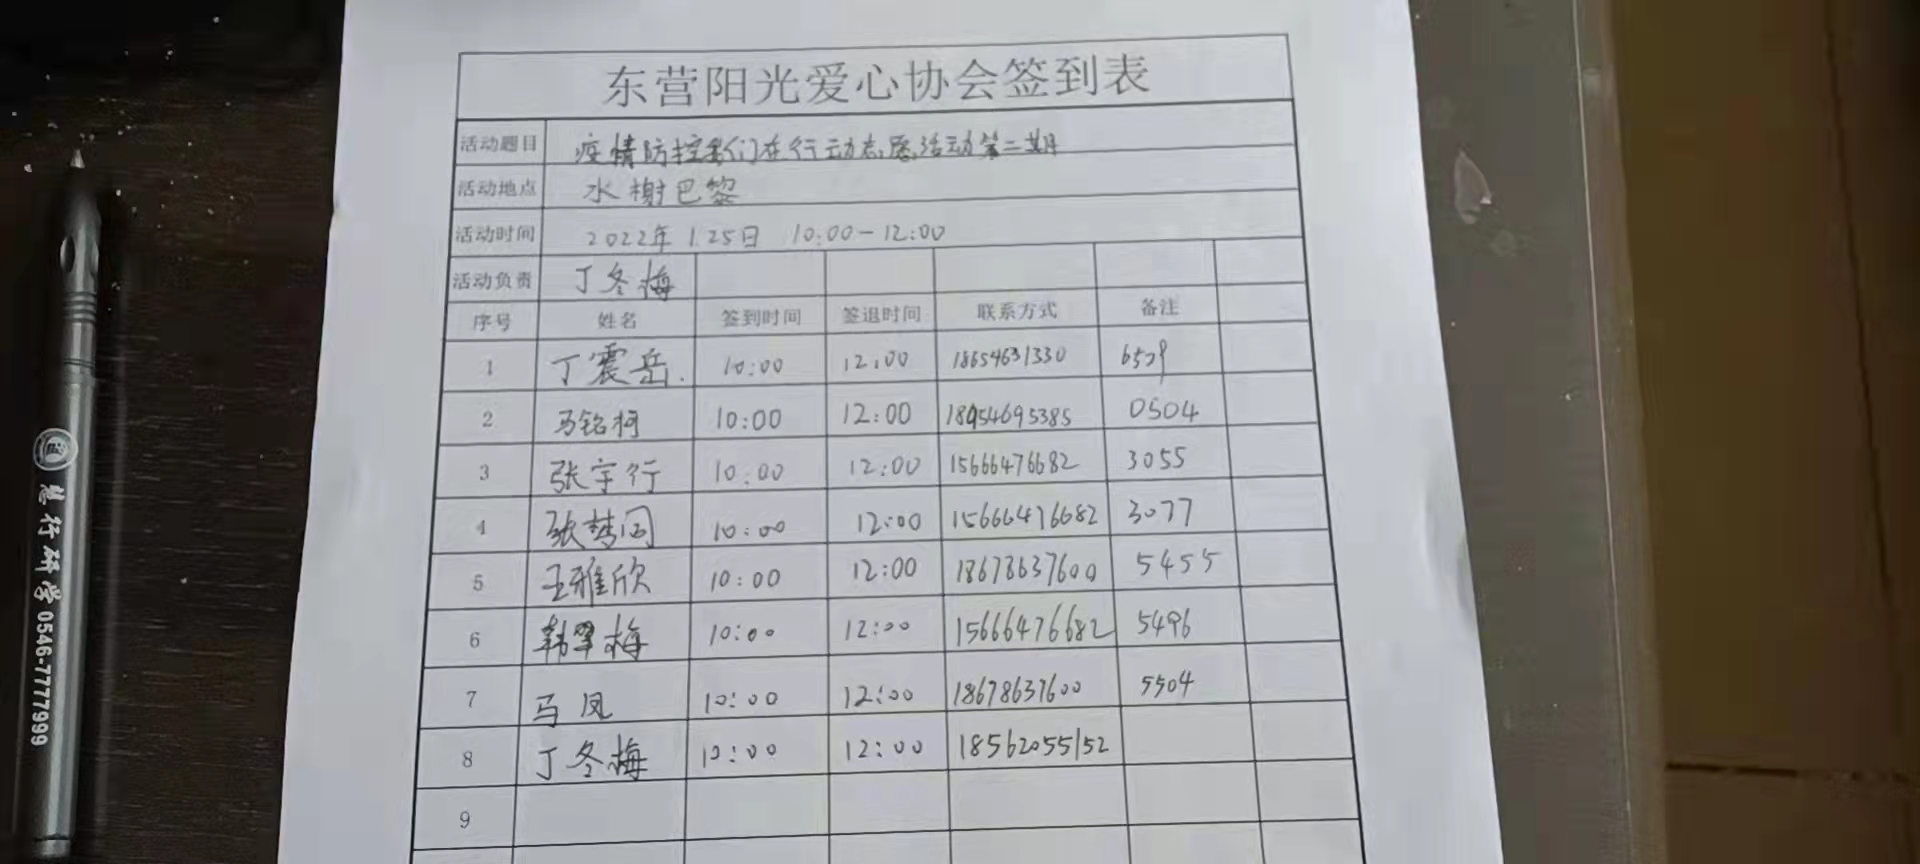 东营阳光爱心协会签到表
活动题目 疫情防控我们在行动志愿活动第二期
活动地点 水榭巴黎
活动时间 2022年1.25日 10:00-12:00
活动负责 丁冬梅
序号 姓名 签到时间 签退时间 联系方式 备注
1 丁震岳. 10:00 12:00 18654631330 6529
2 马铭柯 10:00 12:00 18954695385 0504
3 张宇行 10:00 12:00 15666476682 3055
4 张梦 10:00 12:00 15666476682 3077
5 王雅欣 10:00 12:00 18678637600 5455
6 韩翠梅 10:00 12:00 15666476682 5496
7 马凤 10:00 12:00 18678637600 5504
8 丁冬梅 10:00 12:00 18562055152
9
慧行研学 0546-7777999